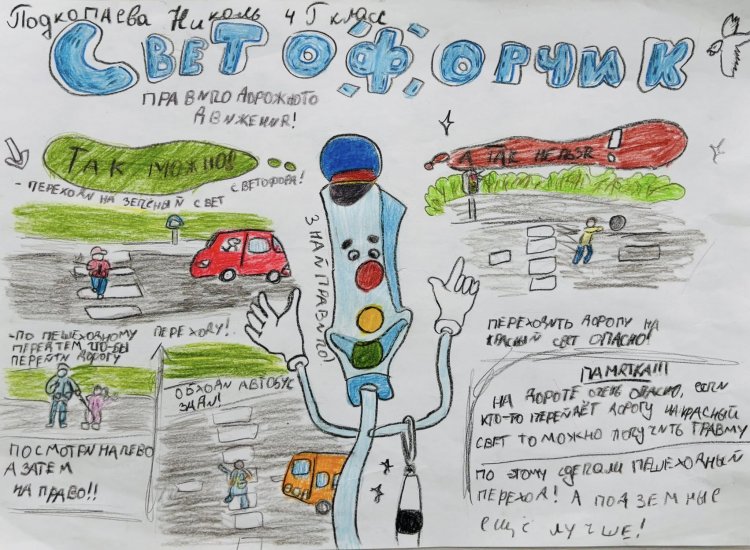 Подкопаева Николь 4 Г класс
СВЕТОФОРЧИК
ПРАВИЛО ДОРОЖНОГО
ДВИЖЕНИЯ!
ТАК МОЖНО!
- ПЕРЕХОДИ НА ЗЕЛЁНЫЙ СВЕТ
СВЕТОФОРА!
А ТАК НЕЛЬЗЯ!
ЗНАЙ ПРАВИЛО!
-ПО ПЕШЕХОДНОМУ ПЕРЕХОДУ!
ПЕРЕЙТИ ДОРОГУ
ПОСМОТРИ НАЛЕВО
А ЗАТЕМ
НА ПРАВО!!
ОБХОДИ АВТОБУС
ЗАДИ!
ПЕРЕХОДИТЬ ДОРОГУ НА
КРАСНЫЙ СВЕТ ОПАСНО!
ПАМЯТКА!!!
НА ДОРОГЕ ОЧЕНЬ ОПАСНО, ЕСЛИ
КТО-ТО ПЕРЕЙДЁТ ДОРОГУ НА КРАСНЫЙ
СВЕТ ТО МОЖНО ПОЛУЧИТЬ ТРАВМУ
ПО ЭТОМУ СДЕЛАЛИ ПЕШЕХОДНЫЙ
ПЕРЕХОД! А ПОДЗЕМНЫЕ
ЕЩЁ ЛУЧШЕ!